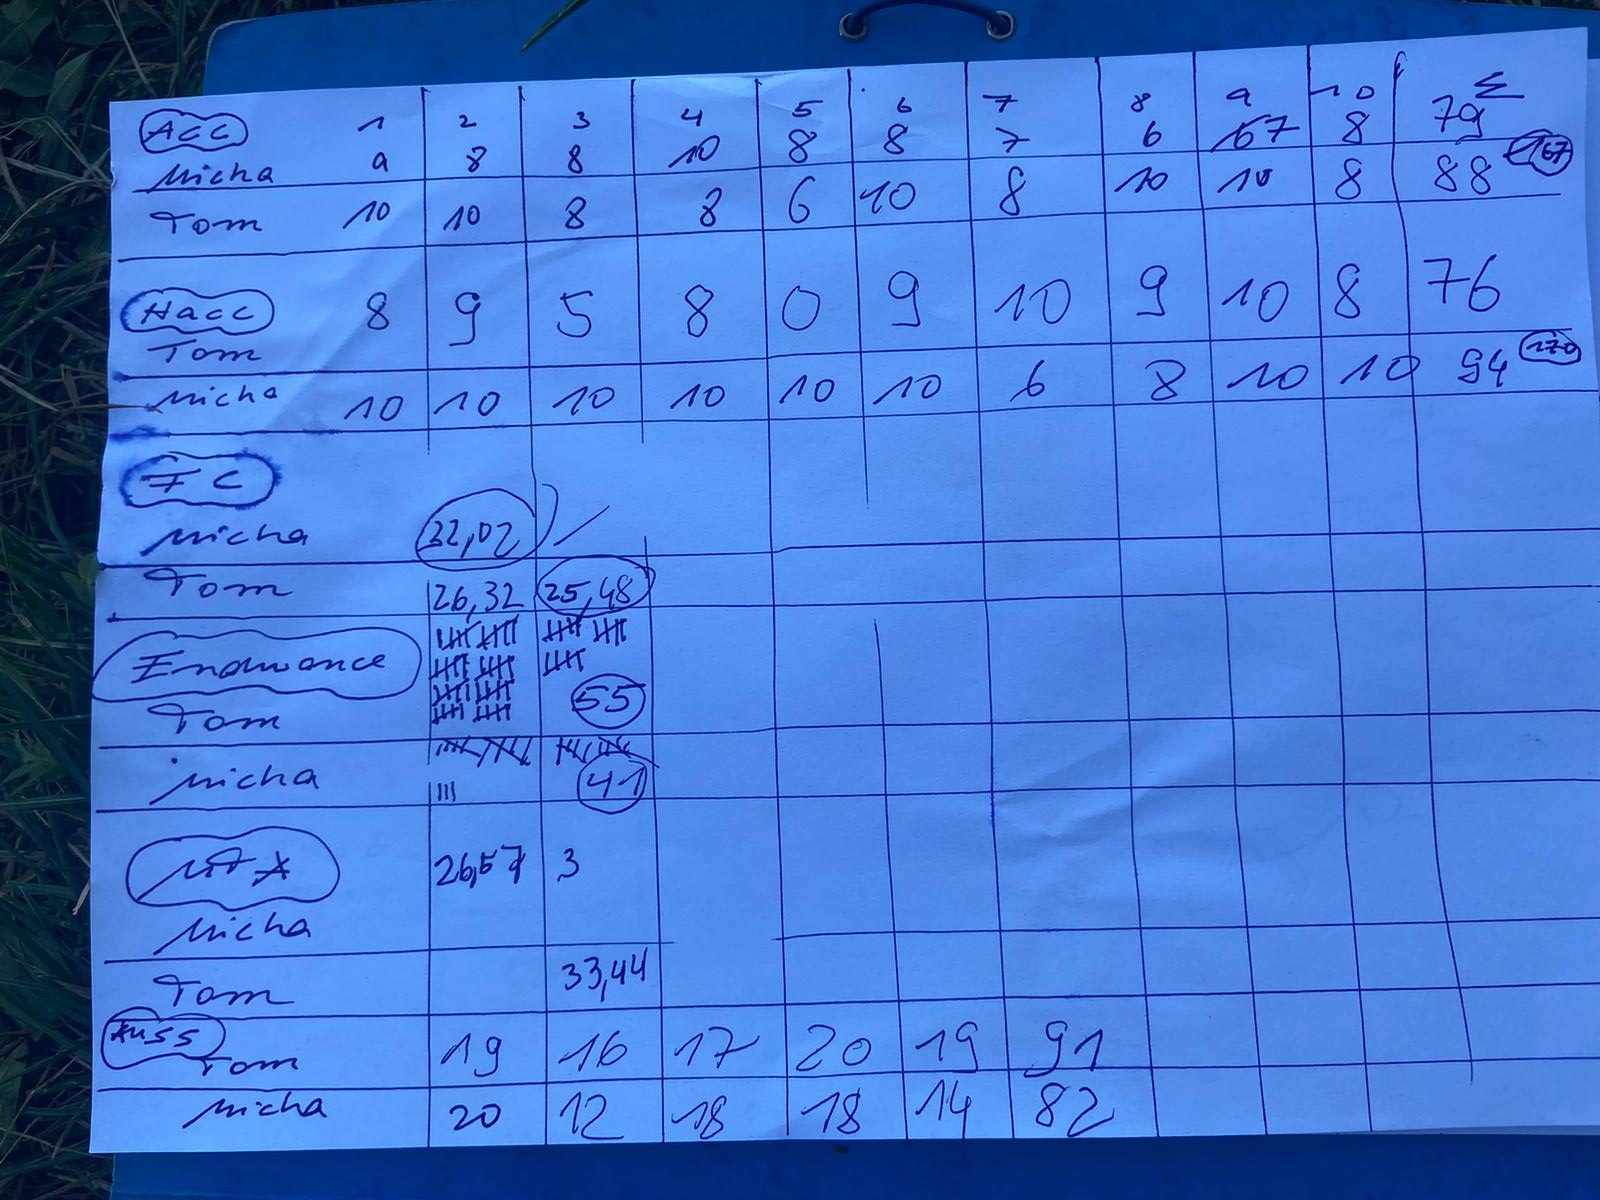 Acc 1 2 3 4 5 6 7 8 9 10 Σ
Micha 9 8 8 10 8 8 7 6 7 8 79
Tom 10 10 8 8 6 10 8 10 10 8 88 167
Hacc 8 9 5 8 0 9 10 9 10 8 76
Tom
Micha 10 10 10 10 10 10 6 8 10 10 94 170
FC
Micha 32,02 /
Tom 26,32 25,48
Endurance
Tom 55
Micha 41
MTA 26,57 3
Micha
Tom 33,44
Auss
Tom 19 16 17 20 19 91
Micha 20 12 18 18 14 82